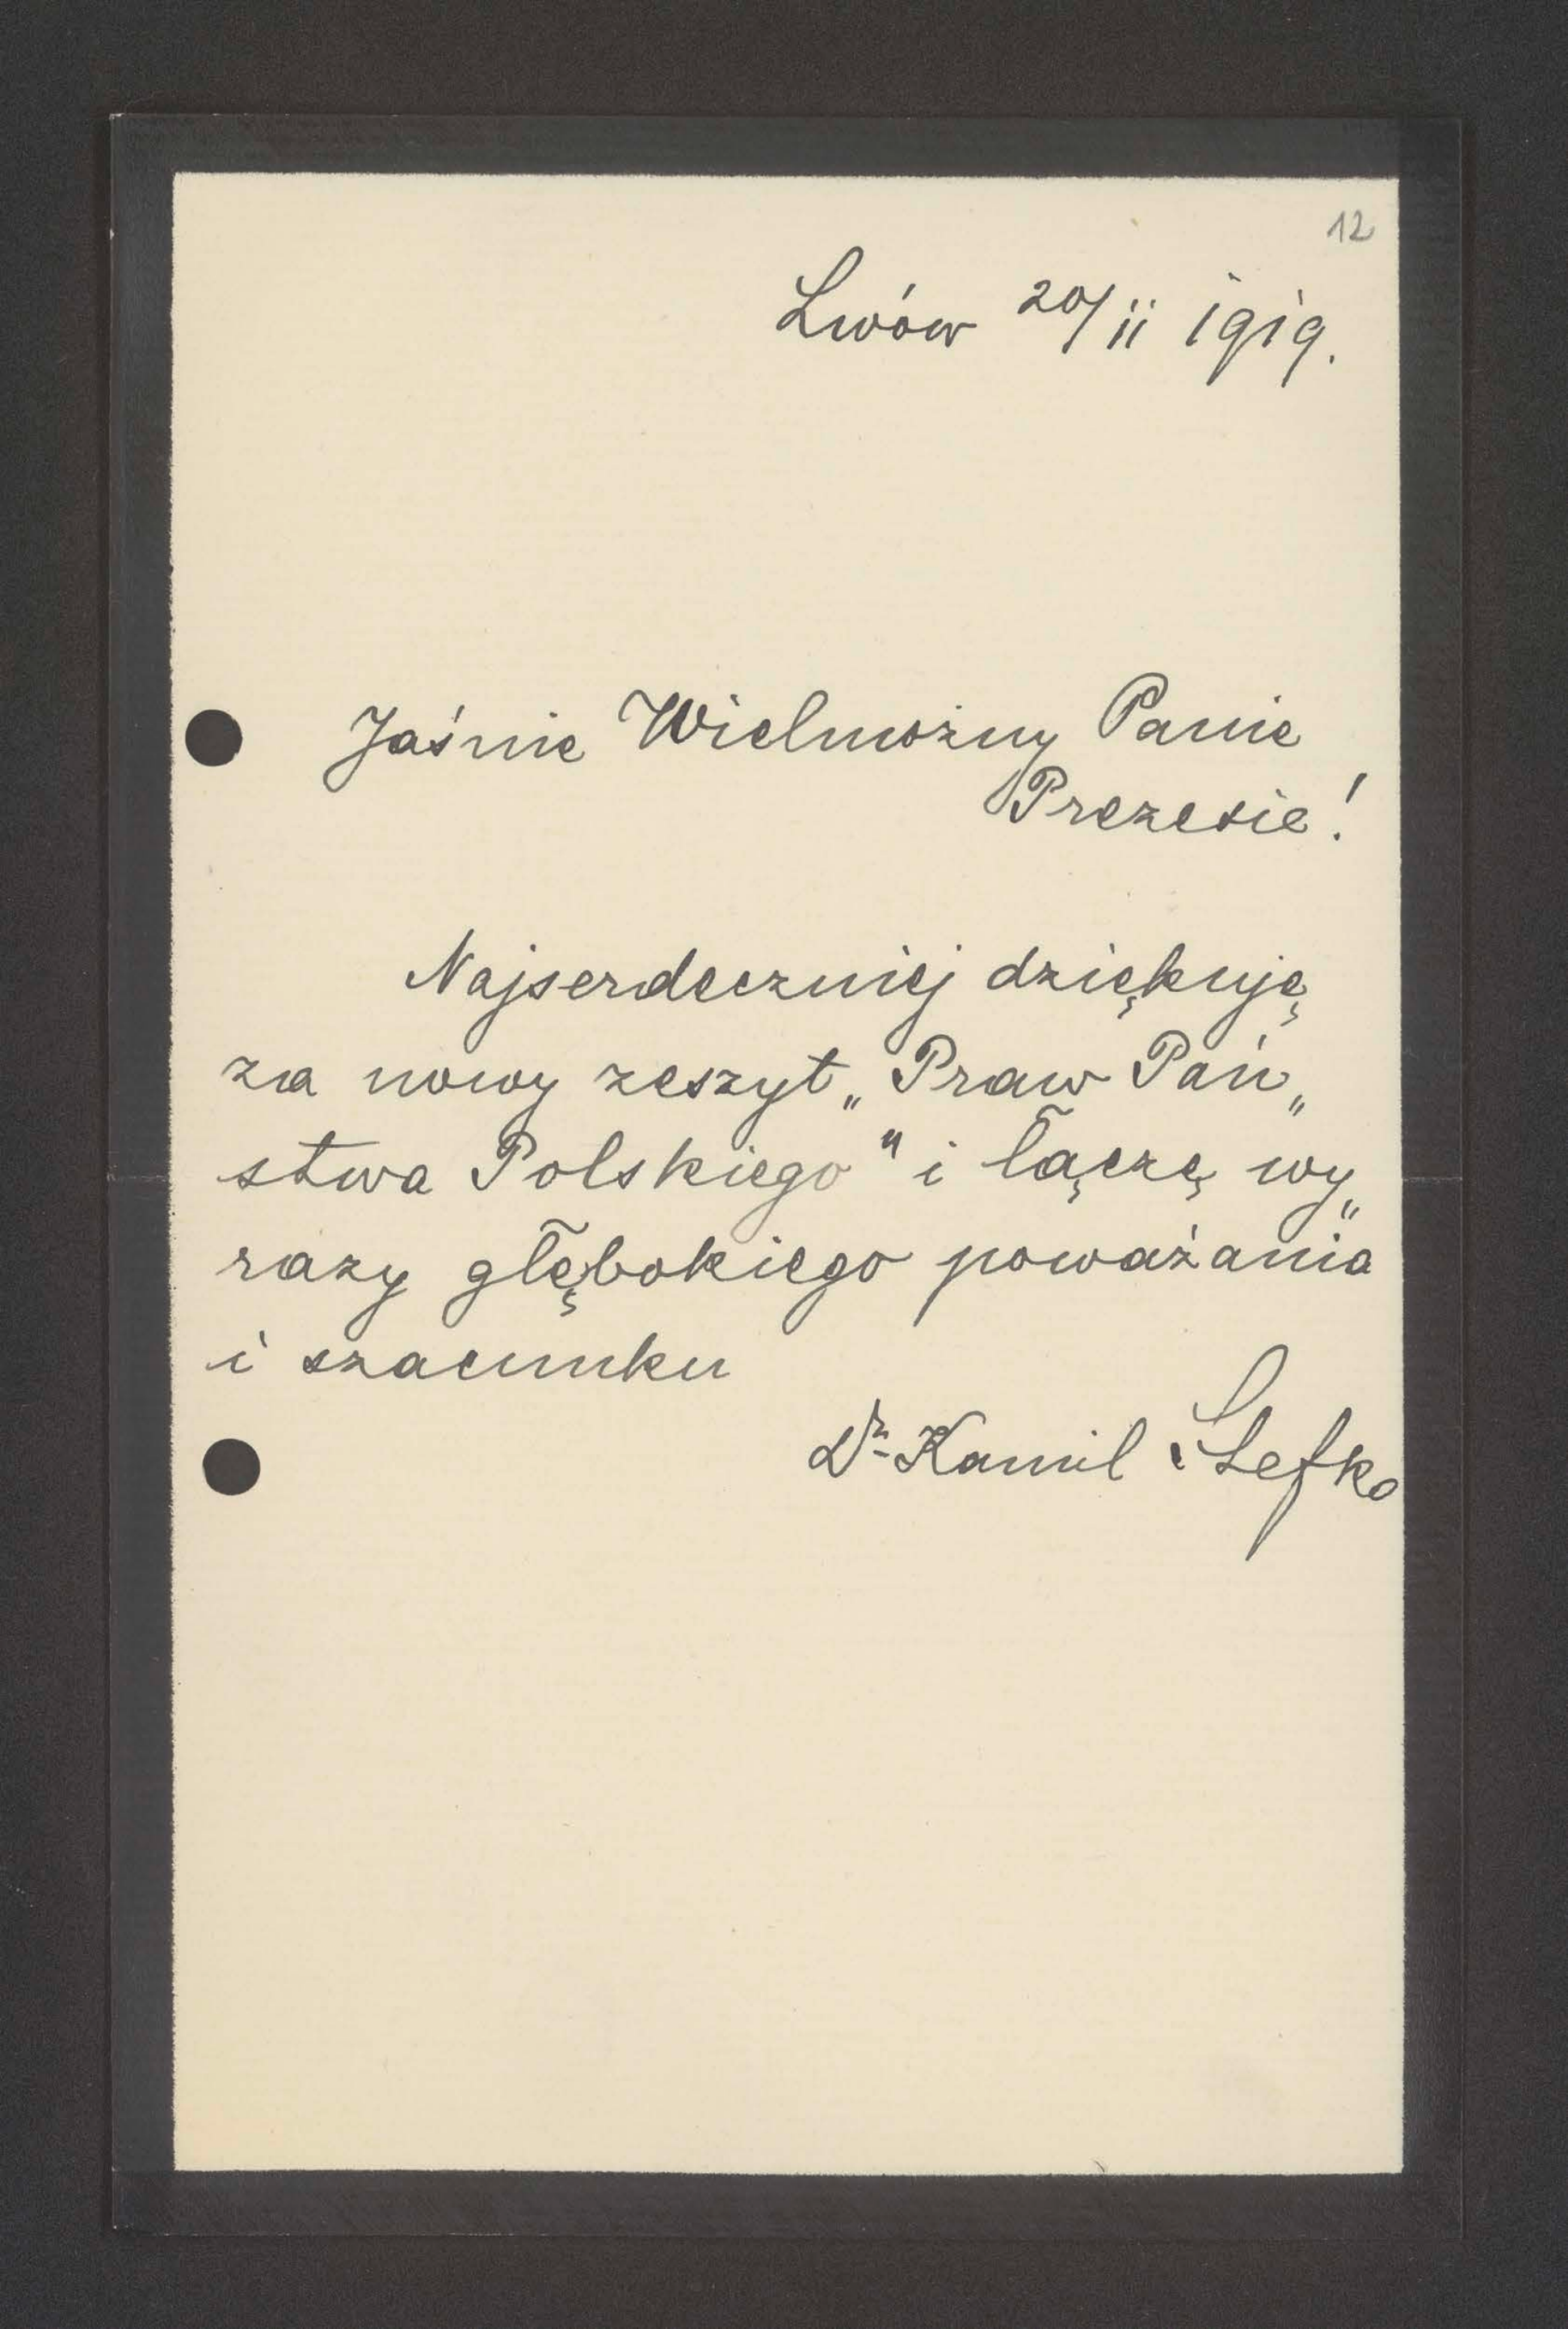 12
Lwów 20/ii 1919.
Jaśnie Wielmożny Panie
Prezesie!
Najserdeczniej dziękuję
za nowy zeszyt „Praw Pań„
stwa Polskiego" i łączę wy„
razy głębokiego poważania
i szacunku
Dr Kamil Stefko